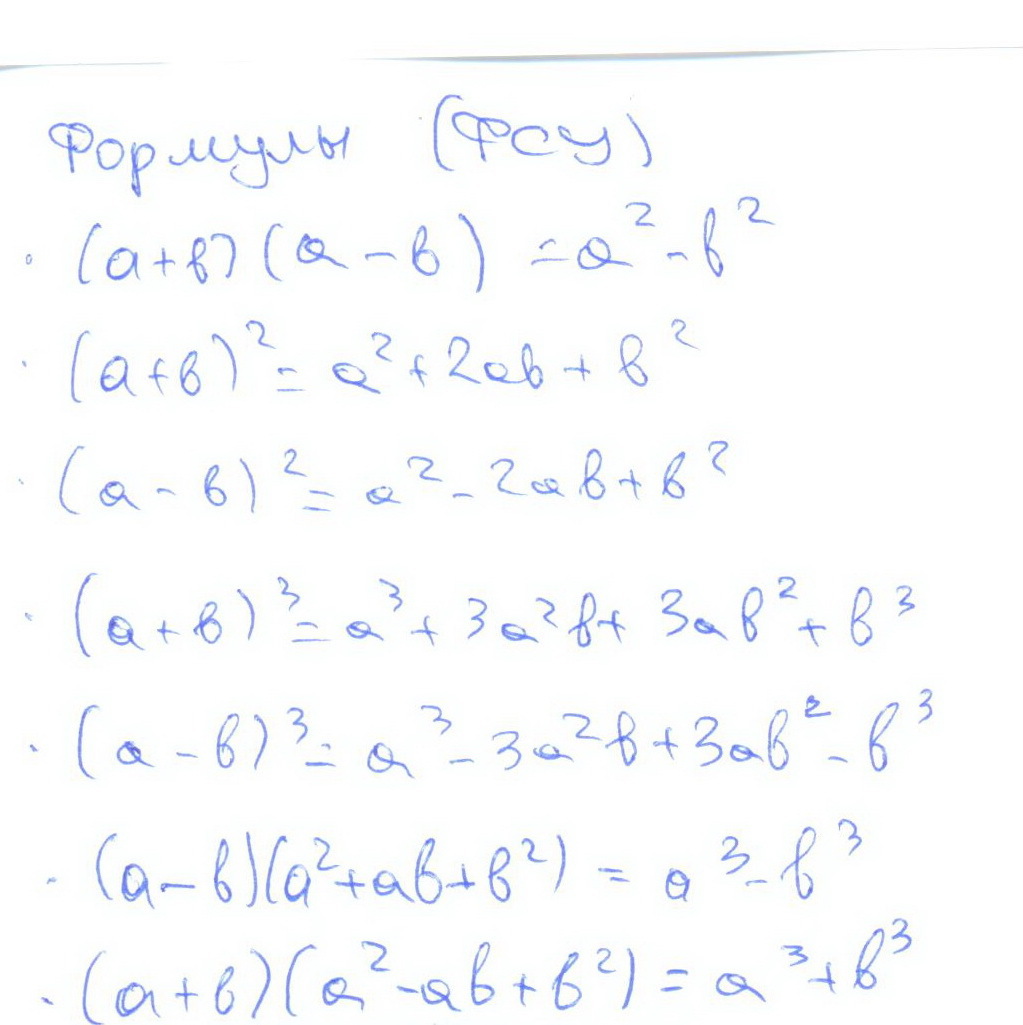 Формулы (ФСУ)
· (a+b)(a-b) = a² - b²
· (a+b)² = a² + 2ab + b²
· (a-b)² = a² - 2ab + b²
· (a+b)³ = a³ + 3a²b + 3ab² + b³
· (a-b)³ = a³ - 3a²b + 3ab² - b³
· (a-b)(a²+ab+b²) = a³ - b³
· (a+b)(a²-ab+b²) = a³ + b³